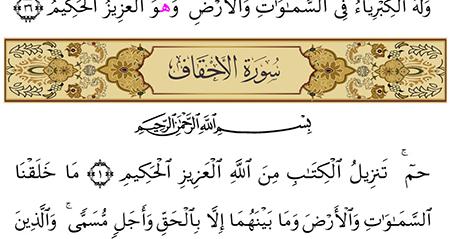 وَلَهُ الْكِبْرِيَاءُ فِي السَّمَاوَاتِ وَالْأَرْضِ وَهُوَ الْعَزِيزُ الْحَكِيمُ ﴿٣٦﴾
سُورَةُ الْأَحْقَافِ
بِسْمِ اللَّهِ الرَّحْمَٰنِ الرَّحِيمِ
حمٓ ۚ تَنْزِيلُ الْكِتَابِ مِنَ اللَّهِ الْعَزِيزِ الْحَكِيمِ ﴿١﴾ مَا خَلَقْنَا
السَّمَاوَاتِ وَالْأَرْضَ وَمَا بَيْنَهُمَا إِلَّا بِالْحَقِّ وَأَجَلٍ مُسَمًّى ۚ وَالَّذِينَ